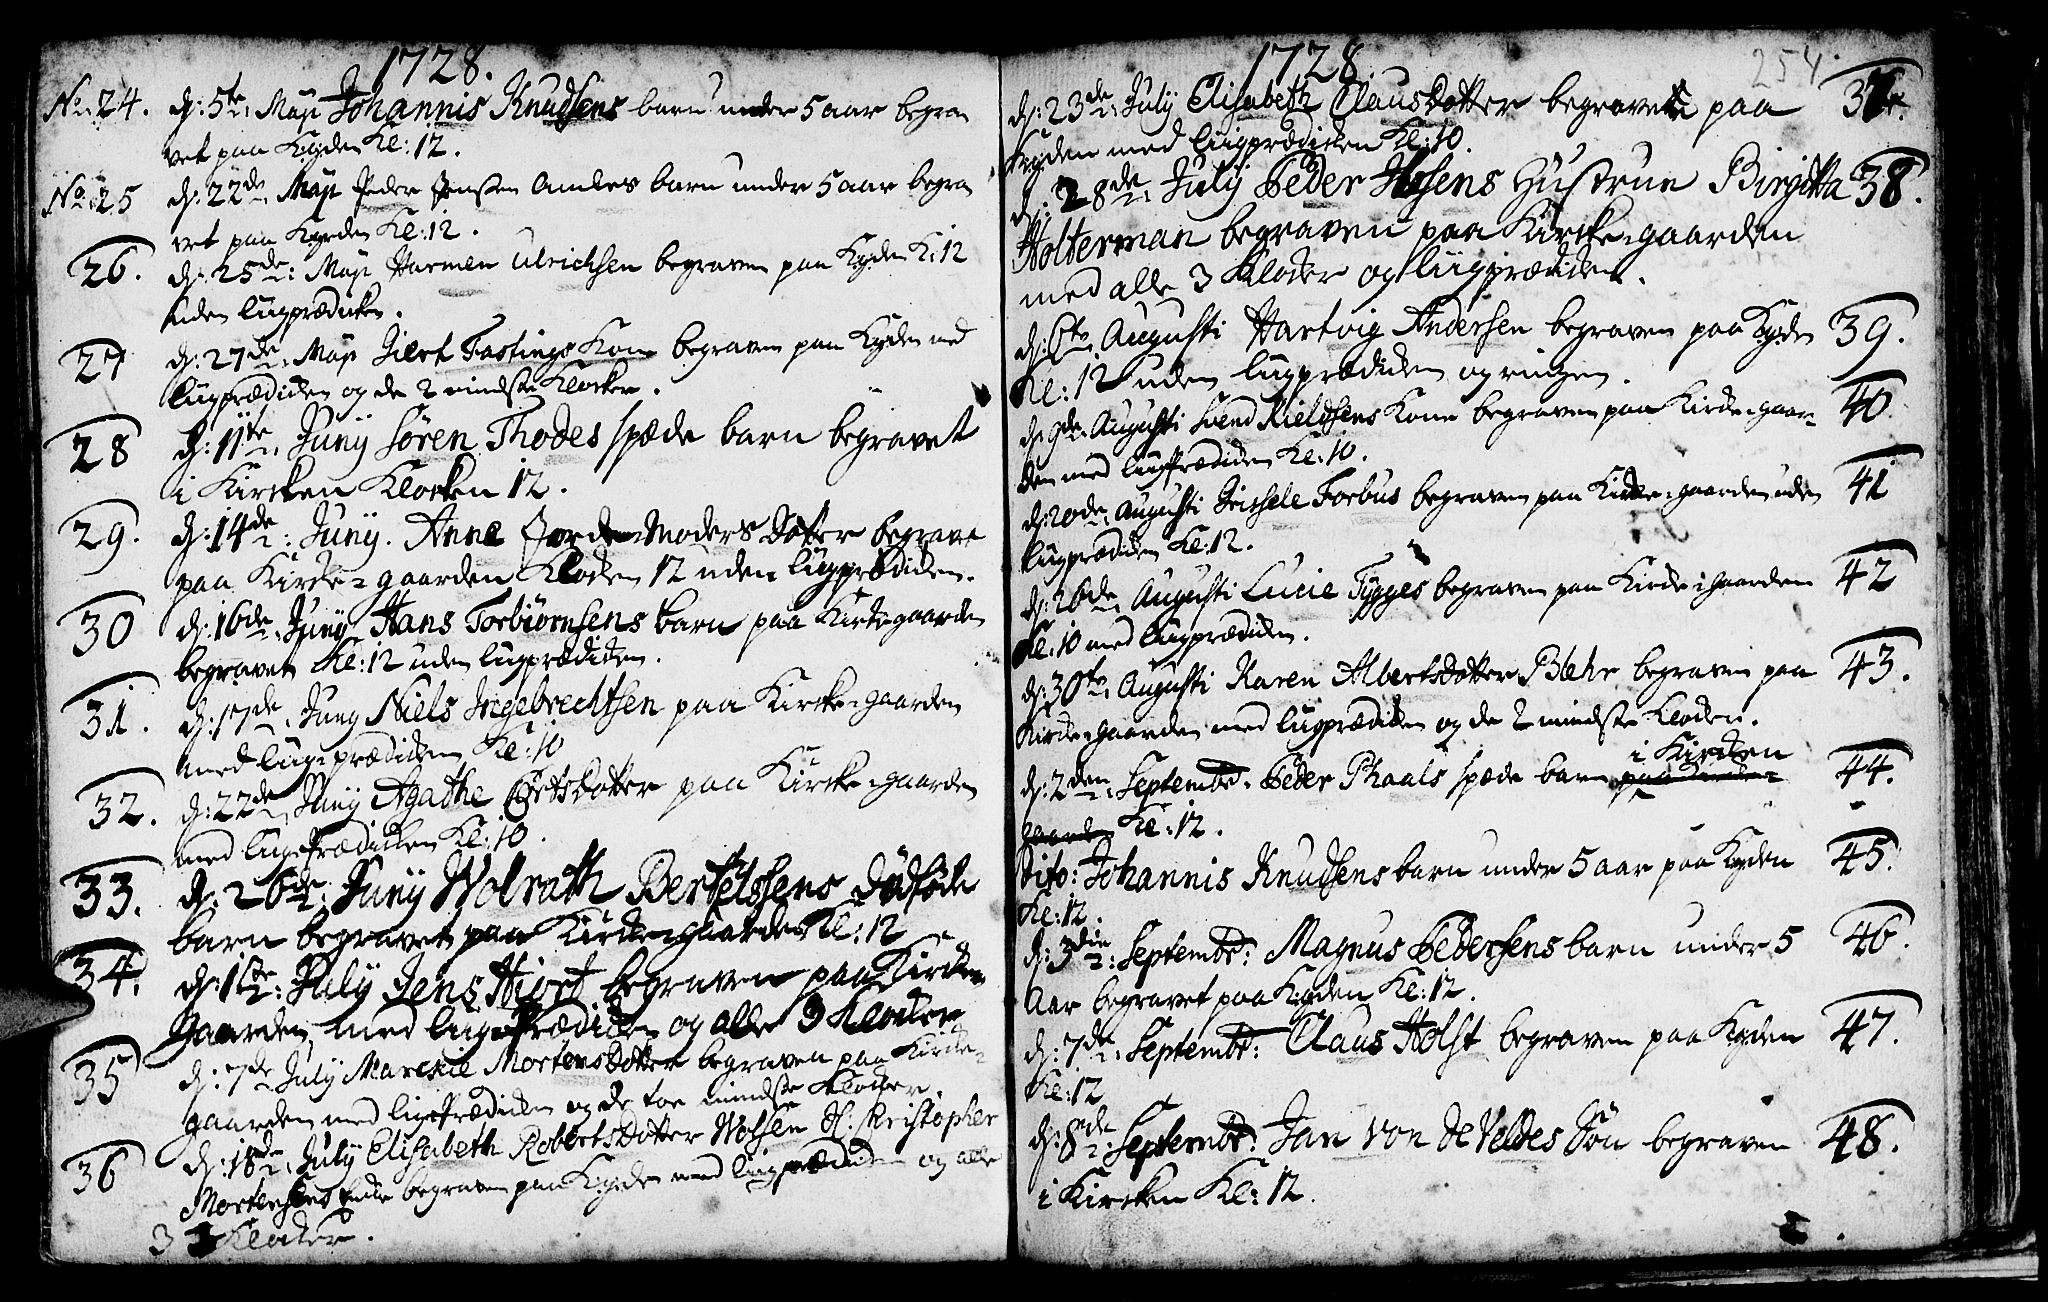 1728.
No. 24. d: 5te: Maÿ Johannis Knudsens barn under 5 aar begra
vet paa Kgden Kl: 12.
No 25 d: 22de Maÿ Peder Jensen Amles barn under 5 aar begra
vet paa Kgrden Kl: 12.
26. d: 25de: Maÿ Harmen Ulrichsen begraven paa Kgden K: 12
uden liigprædicken.
27 d: 27de: Maÿ Giert Fastings Kone begraven paa Kgden med
liigprædicken og de 2 mindste Klocker.
28 d: 11te: Junÿ Sören Thodes spæde barn begravet
i Kircken Klocken 12.
29. d: 14de: Junÿ. Anne Jordemoders dotter begravet
paa Kircke-gaarden Klocken 12 uden liigprædicken.
30 d: 16de: Junÿ Hans Torbiørnsens barn paa Kirkegaarden
begravet Kl: 12 uden liigprædicken.
31. d: 17de: Junÿ Niels Ingebrechtsen paa Kircke-gaarden
med liig-prædicken Kl: 10
32. d: 22de: Junÿ Agathe dotter paa Kircke-gaarden
med liigprædicken Kl: 10.
33. d: 26de: Junÿ Wolrath Bertelssens dødföde
barn begravet paa Kircke-gaarden Kl: 12
34. d: 1ste: Julÿ Jens Hiort begraven paa Kircke
gaarden, med liig-Prædicken og alle 3 Klocker
35 d: 7de Julÿ Marckie Mortensdotter begraven paa Kircke-
gaarden med ligprædicken og de toe mindste Klocker.
36 d: 18de: Julÿ Elisabeth Robbertsdotter Wolsen Sl: Kristopher
Mortensens Encke begraven paa Kgden med liigprædicken og alle
3 Klocker.
1728.
254.
d: 23de: Julÿ Elisabeth Clausdotter begravet paa 37.
Kgden med liigprædicken Kl: 10.
d: 28de: Julÿ Peder Hustrue Birgitta 38.
Holterman begraven paa Kircke-gaarden
med alle 3 Klocker og liigprædicken.
d: 6te: Augusti Hartvig Andersen begraven paa Kgden 39.
Kl: 12 uden liigprædicken og ringen.
d: 9de: Augusti Svend Nieldsens Kone begraven paa Kircke-gaar- 40.
den med liigprædicken Kl: 10.
d: 20de: Augusti Geishele Forbus begraven paa Kircke-gaarden uden 41
liigprædicken Kl: 12.
d: 26de: Augusti Lucie Tygges begraven paa Kircke-gaarden 42
Kl: 10 med liigprædicken.
d: 30te: Augusti Karen Albertsdotter Blehr begraven paa 43.
Kircke-gaarden med liigprædicken og de 2 mindste Klocker.
i Kircken
d: 2den: Septembr. Peder Phaals spæde barn paa Kircke- 44.
gaarden Kl: 12.
Dito: Johannis Knudsens barn under 5 aar paa Kgden 45.
Kl: 12.
d: 3die: Septembr: Magnus Pedersens barn under 5 46.
Aar begravet paa Kgden Kl: 12.
d: 7de: Septembr: Claus Holst begraven paa Kgden 47.
Kl: 12
d: 8de: Septembr: Jan von de Veldes Sön begraven 48.
i Kircken Kl: 12.